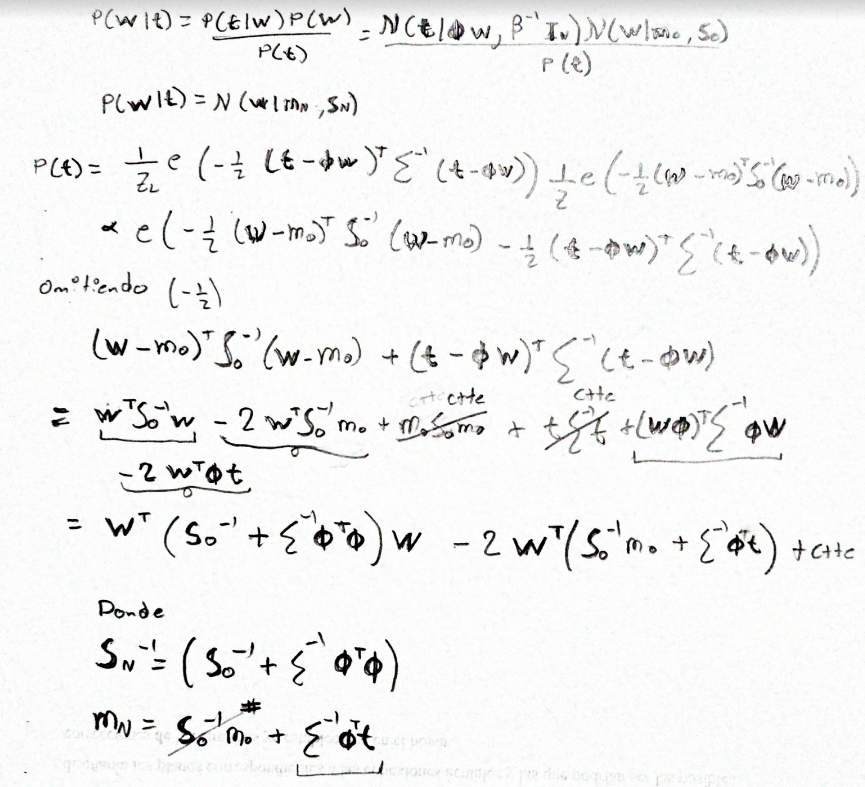 P(w|t) = P(t|w)P(w) / P(t) = N(t|Φw, β⁻¹ I_N) N(w|m₀, S₀) / P(t)
P(w|t) = N(w|m_N, S_N)
P(t) = 1/Z_L e (-1/2 (t-Φw)ᵀ Σ⁻¹ (t-Φw)) 1/Z e (-1/2 (w-m₀)ᵀ S₀⁻¹ (w-m₀))
∝ e (-1/2 (w-m₀)ᵀ S₀⁻¹ (w-m₀) - 1/2 (t-Φw)ᵀ Σ⁻¹ (t-Φw))
Omitiendo (-1/2)
(w-m₀)ᵀ S₀⁻¹ (w-m₀) + (t-Φw)ᵀ Σ⁻¹ (t-Φw)
ctte ctte
= wᵀS₀⁻¹w - 2 wᵀS₀⁻¹m₀ + m₀S₀m₀ + tΣ⁻¹t + (wΦ)ᵀΣ⁻¹Φw
-2 wᵀΦt
= wᵀ (S₀⁻¹ + Σ⁻¹ΦᵀΦ) w - 2 wᵀ(S₀⁻¹m₀ + Σ⁻¹Φᵀt) + ctte
Donde
S_N⁻¹ = (S₀⁻¹ + Σ⁻¹ ΦᵀΦ)
m_N = S₀⁻¹m₀ + Σ⁻¹Φᵀt